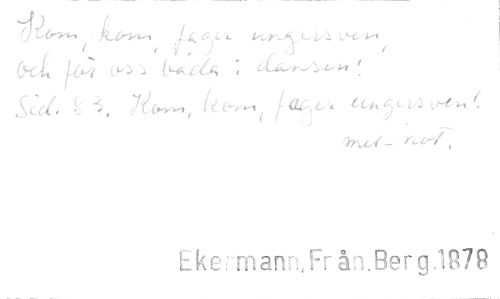 Kom, kom, fager ungersven,
och för oss båda i dansen!
Sid. 83. Kom, kom, fager ungersven!
mel-not.
Ekermann, Från. Berg. 1878